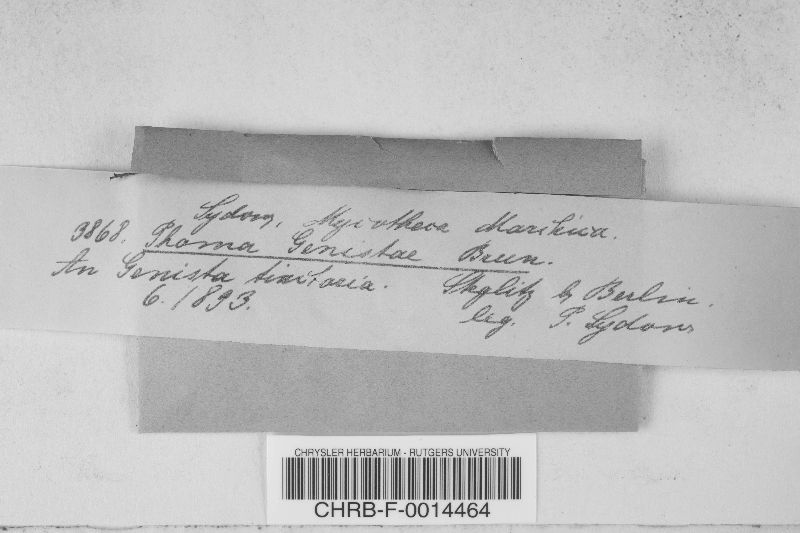 Sydow, Mycotheca Marchica.
3868. Phoma Genistae Brun.
An Genista tinctoria. Steglitz b. Berlin.
6. 1893. leg. P. Sydow
CHRYSLER HERBARIUM - RUTGERS UNIVERSITY
CHRB-F-0014464